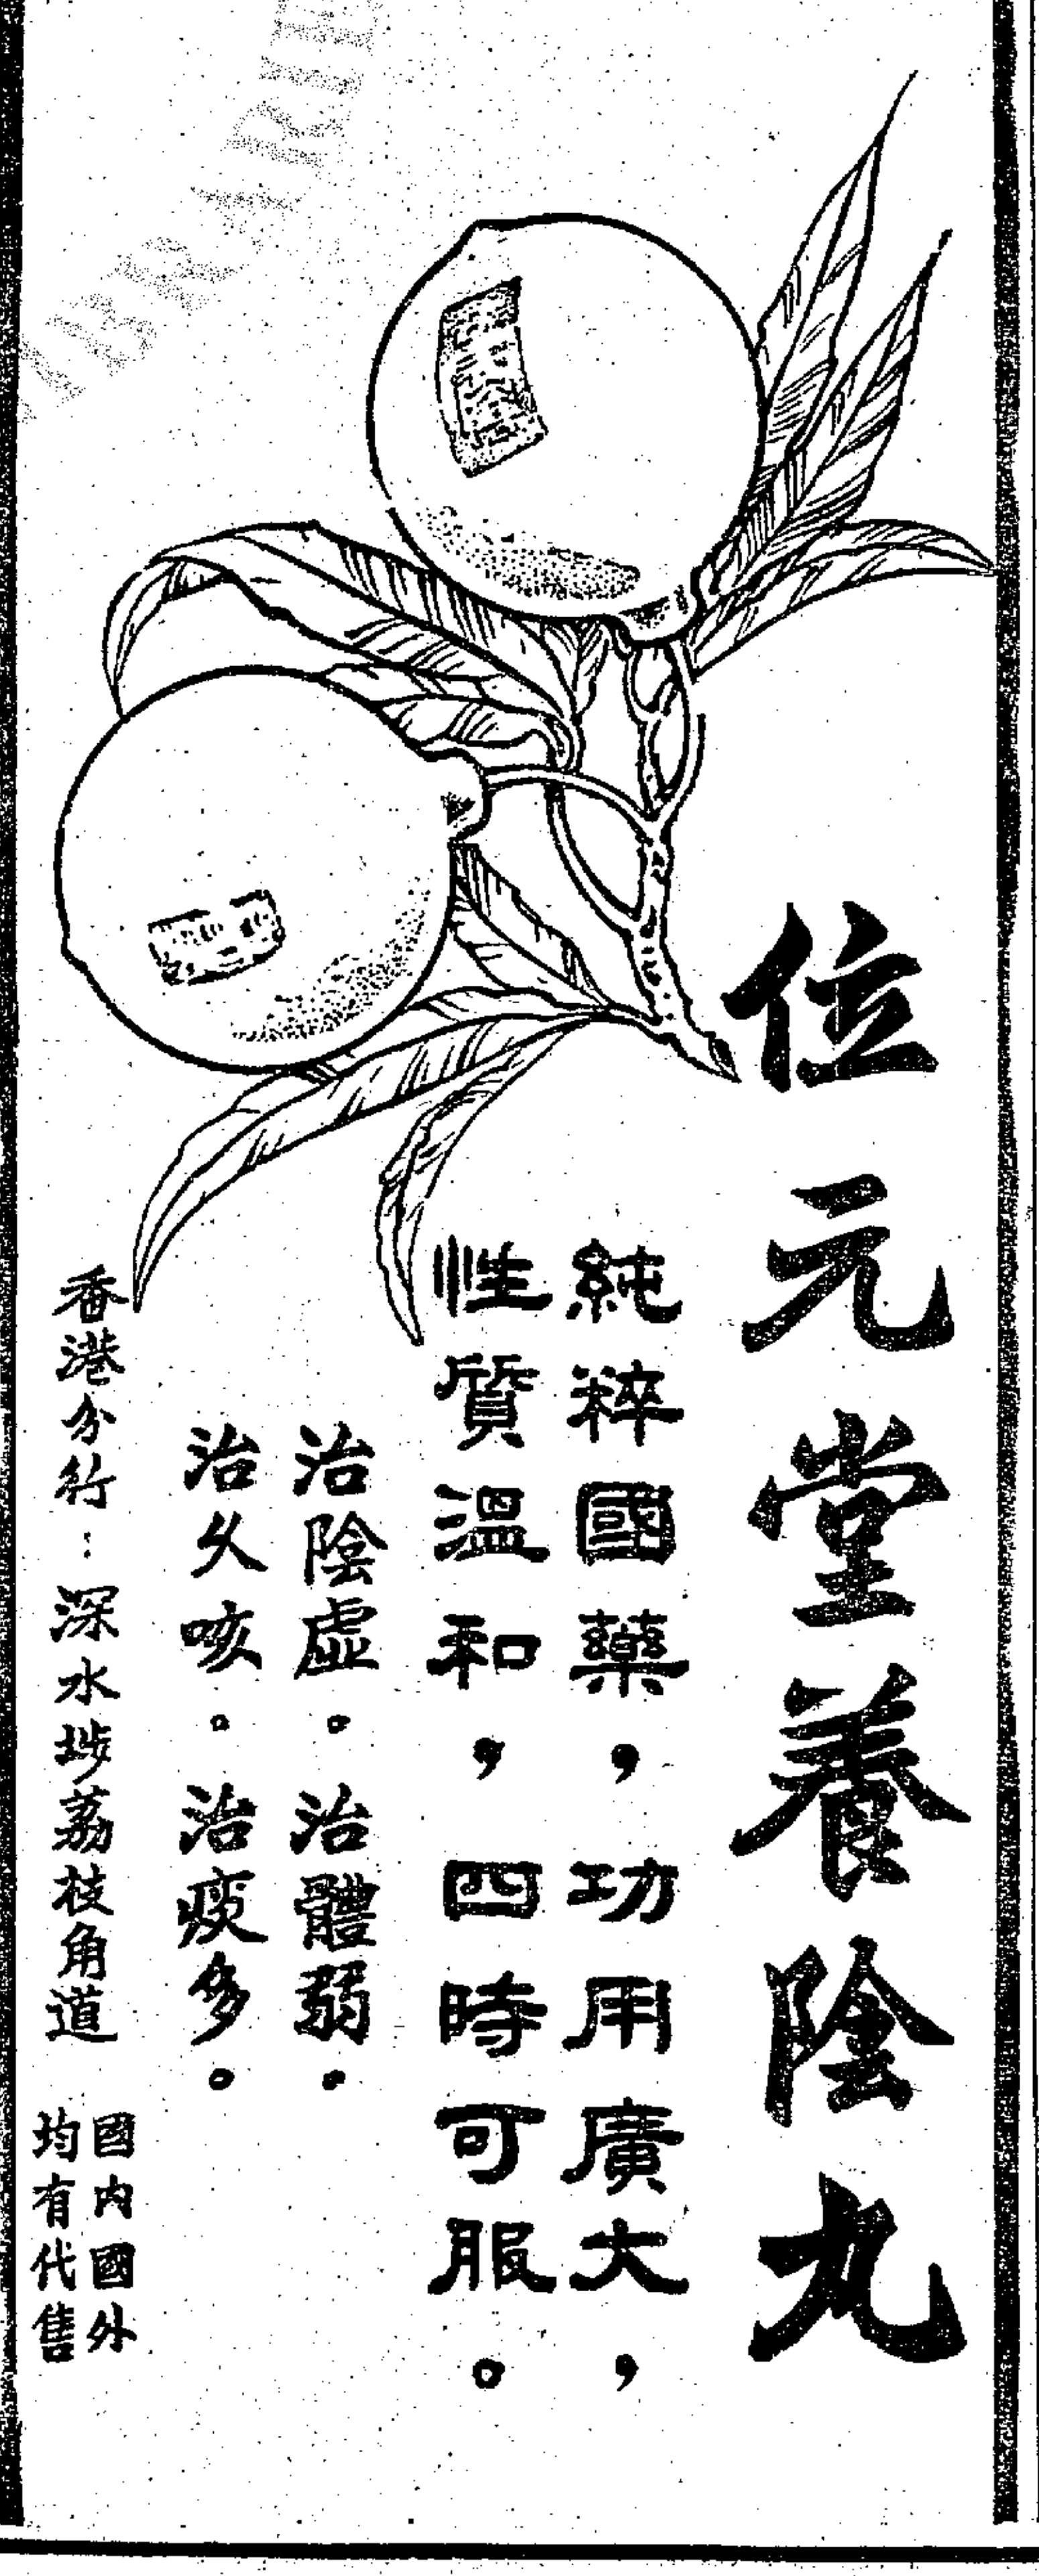 位元堂養陰丸
純粹國藥，功用廣大，
性質溫和，四時可服。
治陰虛。治體弱。
治久咳。治痰多。
香港分行：深水埗荔枝角道
國内國外
均有代售